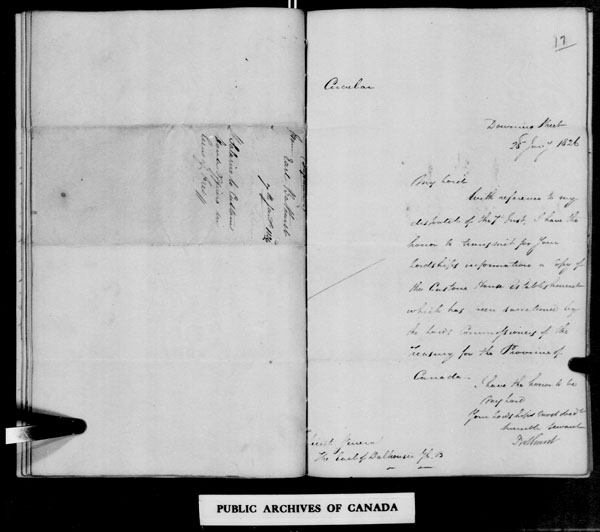 Earl Bathurst
7th Jany 1826
Relative to Custom
House Officers in
17
Circular
Downing Street
28 Jany 1826
My Lord
With reference to my
dispatch of the 7 Inst, I have the
honor to transmit for Your
Lordships information a Copy of
the Custom House establishment
which has been sanctioned by
the Lords Commissioners of the
Treasury for the Province of
Canada.
I have the honor to be
My Lord
Your Lordships most obedt
humble servant
Bathurst
Lieut General
The Earl of Dalhousie G.C.B
PUBLIC ARCHIVES OF CANADA